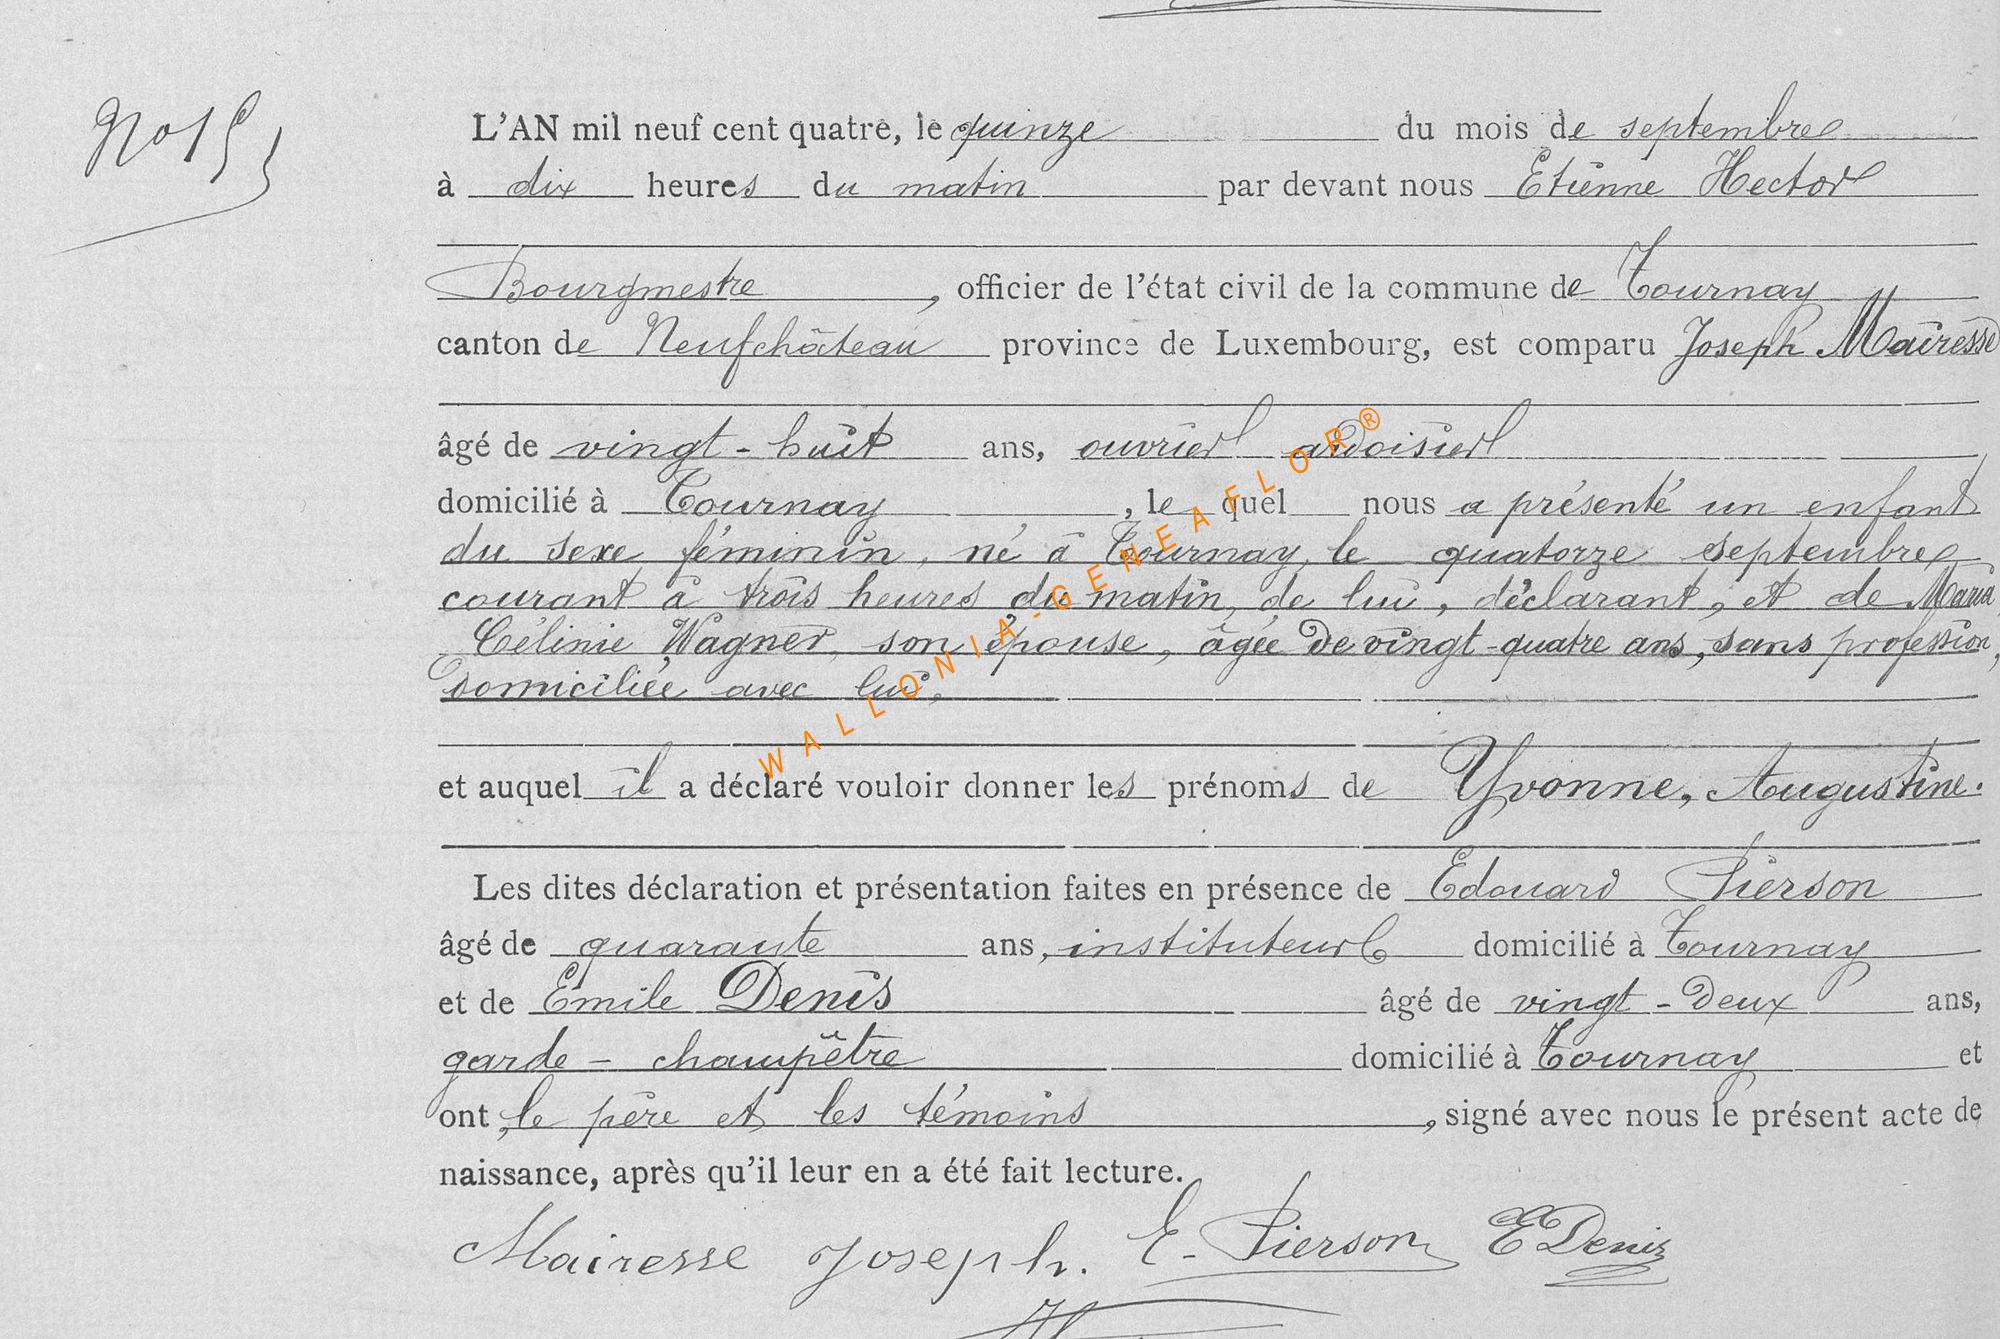 No 15
L'AN mil neuf cent quatre, le quinze du mois de septembre
à dix heures du matin par devant nous Etienne Hector
Bourgmestre, officier de l'état civil de la commune de Tournay
canton de Neufchâteau province de Luxembourg, est comparu Joseph Mairesse
âgé de vingt-huit ans, ouvrier ardoisier
domicilié à Tournay, le quel nous a présenté un enfant
du sexe féminin, né à Tournay, le quatorze septembre
courant à trois heures du matin, de lui, déclarant, et de Maria
Célinie Wagner, son épouse, âgée de vingt-quatre ans, sans profession,
domiciliée avec lui,
et auquel il a déclaré vouloir donner les prénoms de Yvonne, Augustine.
Les dites déclaration et présentation faites en présence de Edouard Pierson
âgé de quarante ans, instituteur domicilié à Tournay
et de Emile Denis âgé de vingt-deux ans,
garde-champêtre domicilié à Tournay et
ont, le père et les témoins, signé avec nous le présent acte de
naissance, après qu'il leur en a été fait lecture.
Mairesse Joseph. E. Pierson E Denis
WALLONIA-GENEAFLOR®